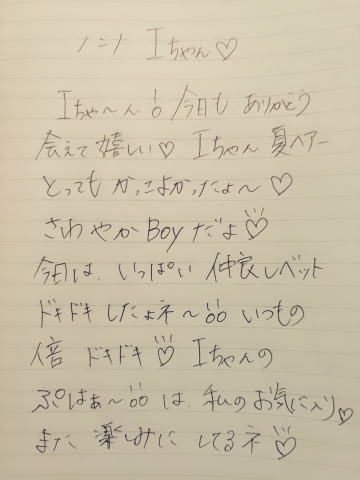 ハニハ Iちゃん♡
Iちゃ〜ん!。今日も ありがとう
会えて嬉しい♡ Iちゃん 夏ヘアー
とっても かっこよかったよ〜♡
さわやかBoyだよ♡
今日は、いっぱい 仲良しベット
ドキドキしたよネ〜!! いつもの
倍 ドキドキ♡ Iちゃんの
ぷはぁ〜!! は、私のお気に入り♡
また 楽しみに してるネ♡